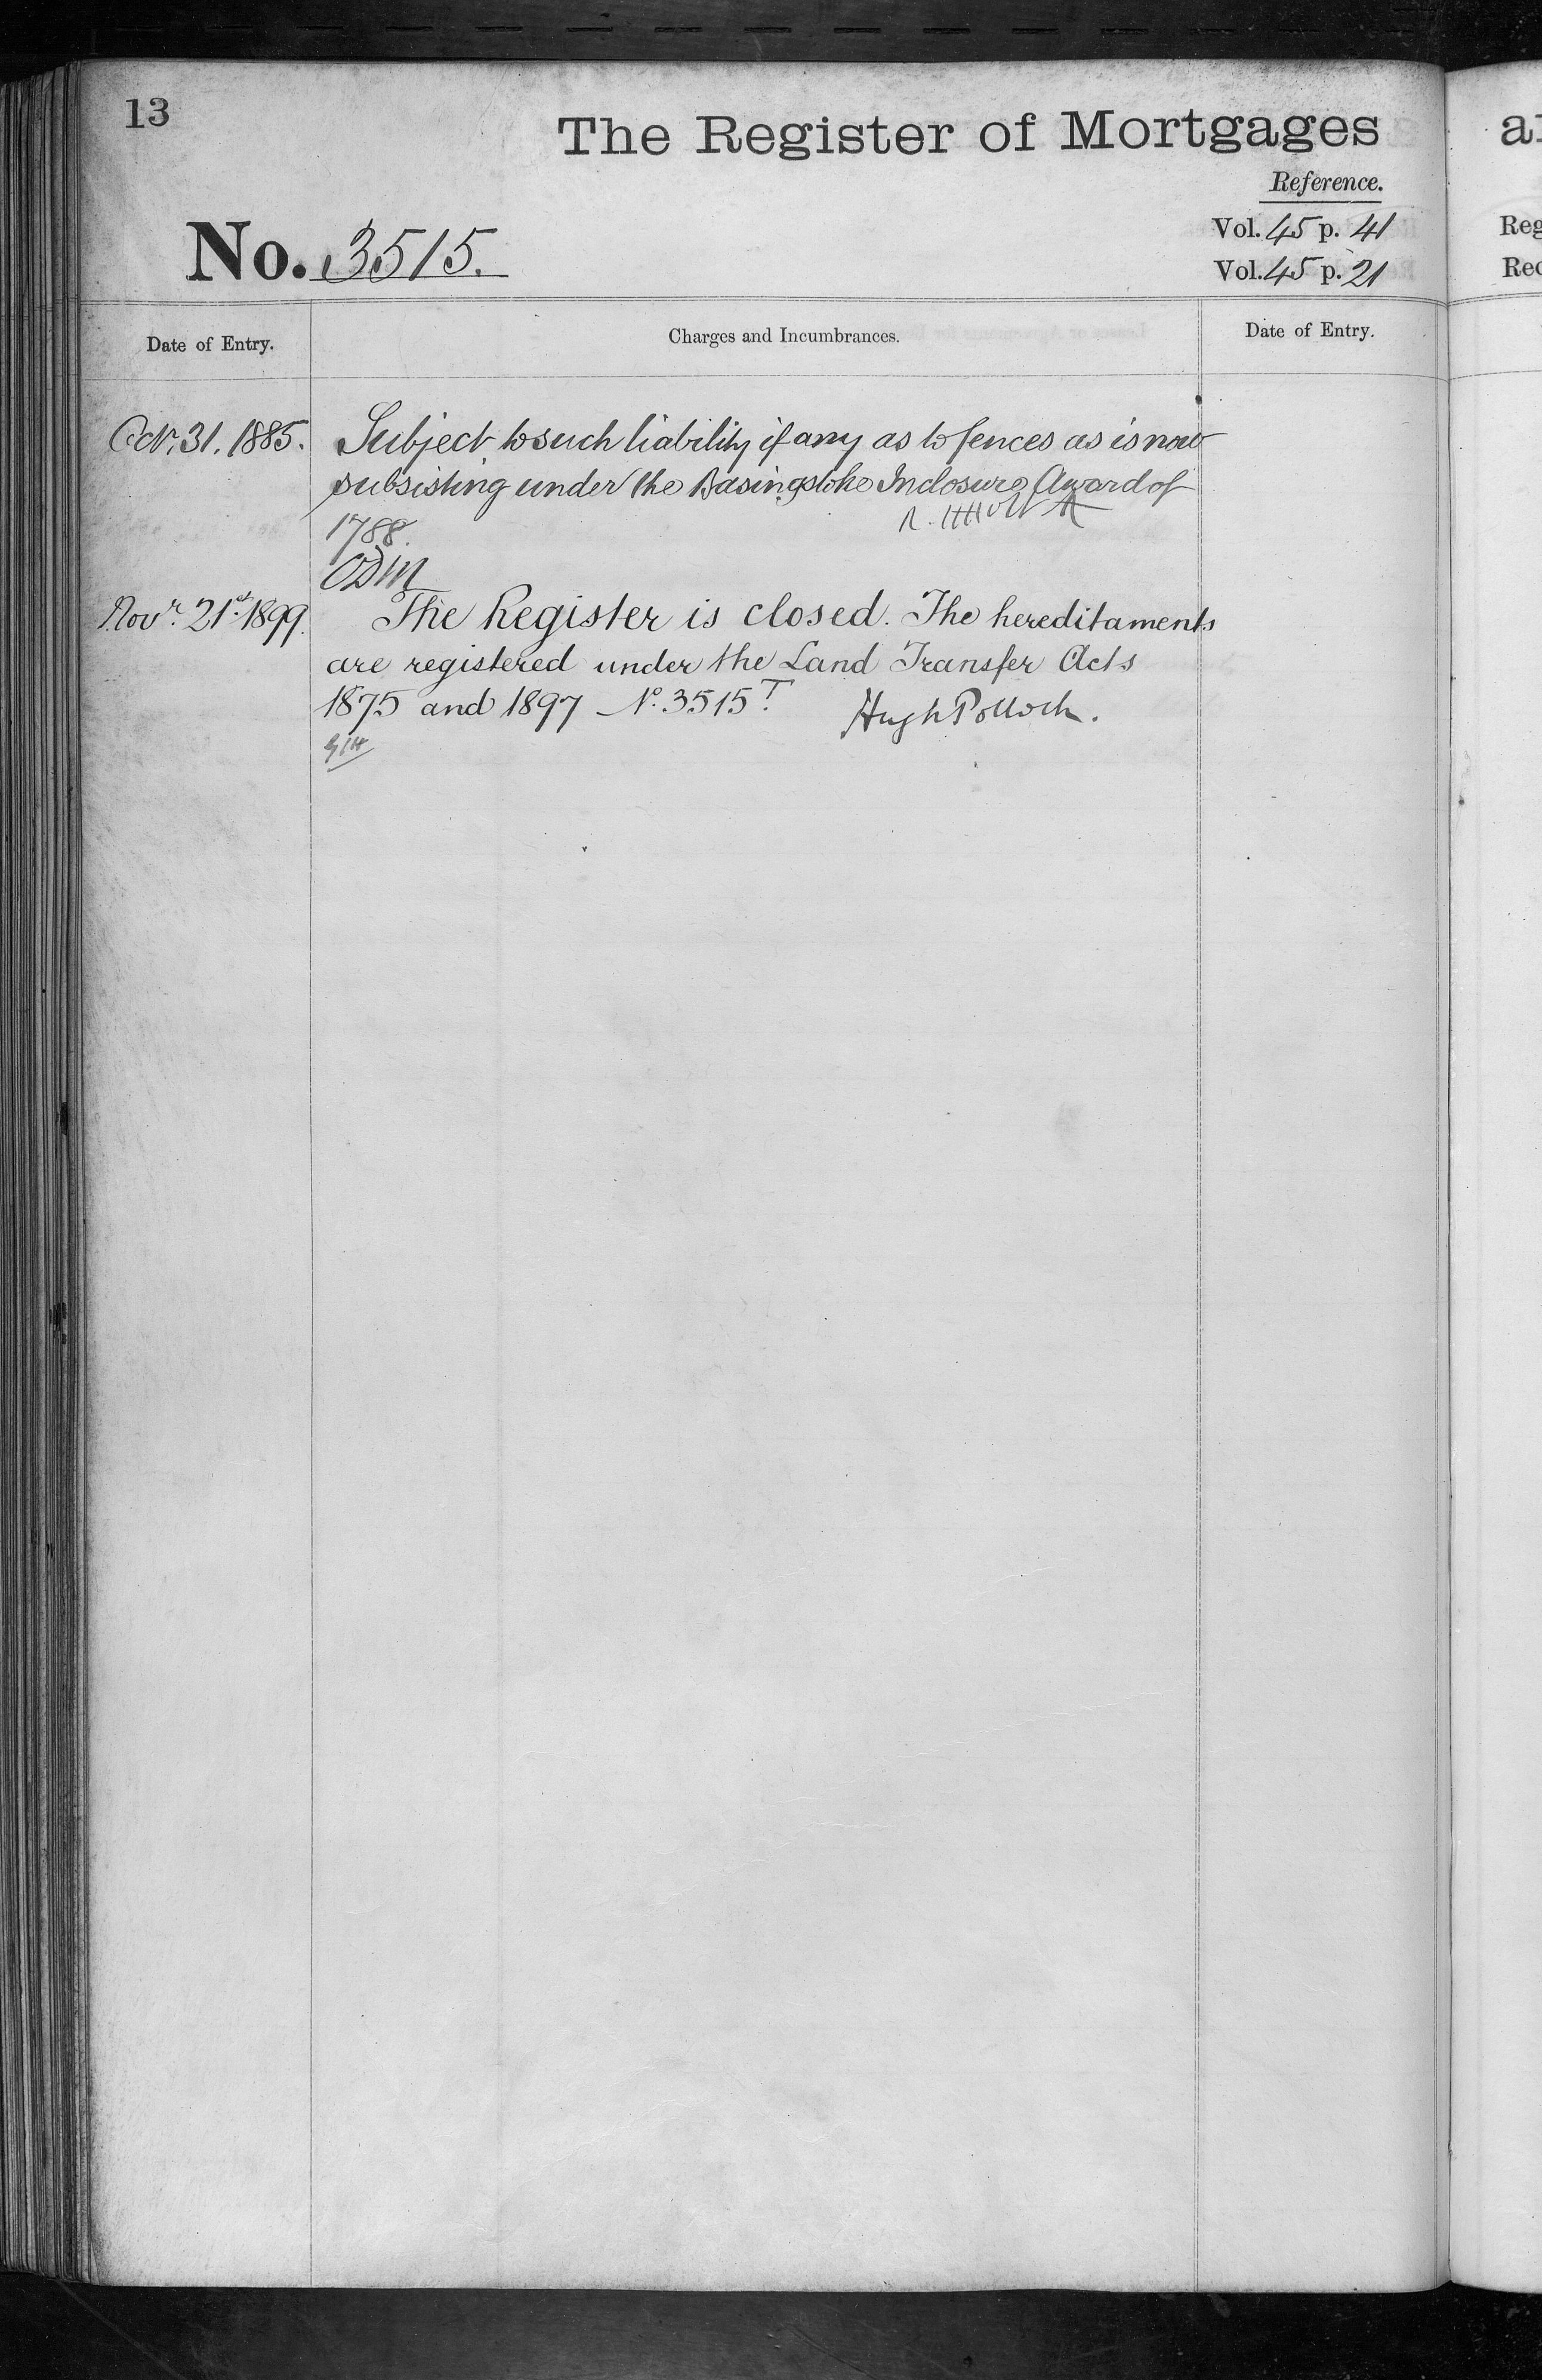 13
The Register of Mortgages
Reference.
Vol. 45 p. 41
No. 3515.
Vol. 45 p. 21
Date of Entry.
Charges and Incumbrances.
Date of Entry.
Octr. 31. 1885.
Subject to such liability if any as to fences as is now
subsisting under the Basingstoke Inclosure Award of
1788.
Novr. 21st 1899.
The Register is closed. The hereditaments
are registered under the Land Transfer Acts
1875 and 1897 No. 3515T.
Hugh Pollock.
Reg
Rec